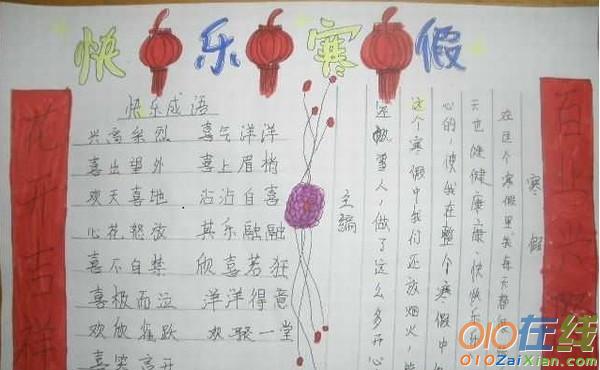 快乐寒假
花开吉祥
快乐成语
兴高采烈 喜气洋洋
喜出望外 喜上眉梢
欢天喜地 沾沾自喜
心花怒放 其乐融融
喜不自禁 欣喜若狂
喜极而泣 洋洋得意
欢欣 跃 欢聚一堂
喜笑 开
百业兴
寒假
在这个寒假里我每天都
天也健健康康,快快乐
心的,使我在整个寒假中
这个寒假中我们还放烟火
还 雪人,做了这么多开心
主编
010在线
010ZaiXian.com